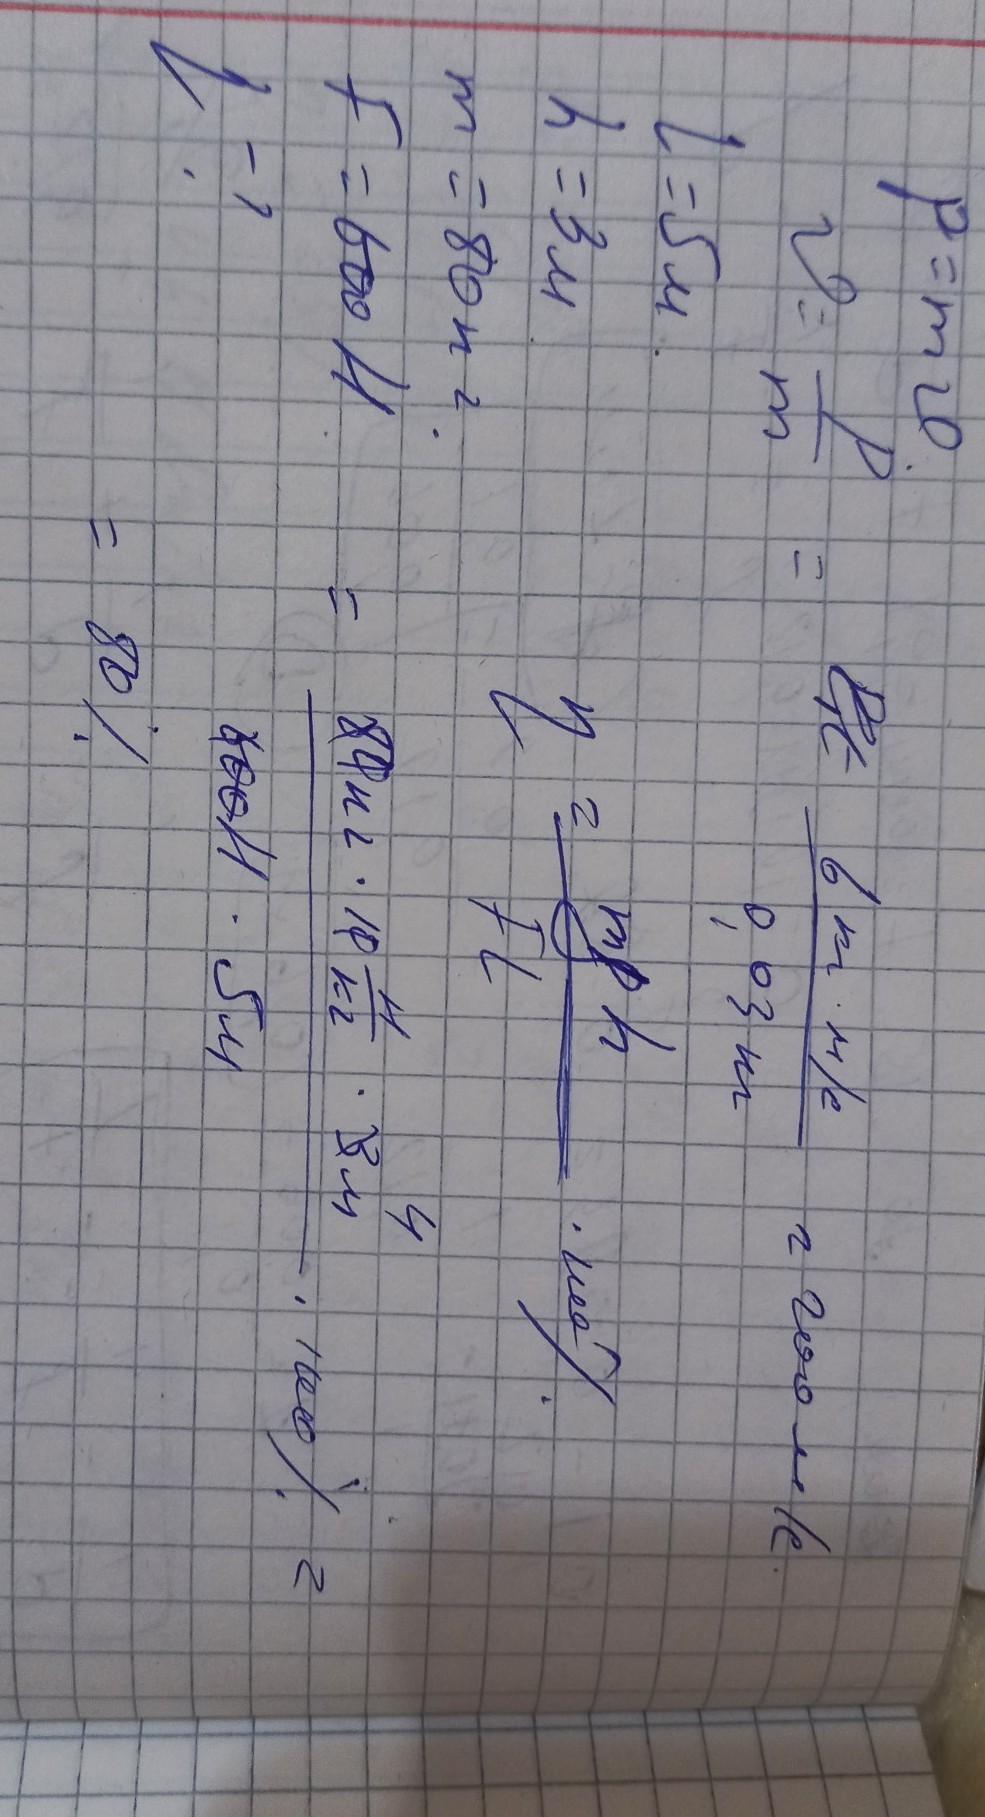 p = mυ.
υ = p/m = (6 т · м/с)/(0,03 кг) = 200 м/с.
l = 5 м.
h = 3 м
m = 80 кг.
F = 600 Н.
η - ?
η = mgh/FL · 100%.
= (80 кг · 10 Н/кг · 3 м)/(600 Н · 5 м) · 100% =
= 80%